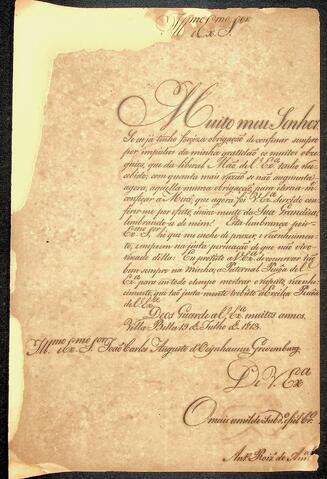 Illmo. e Exmo. Snr.
Muito meu Senhor
Se eu ja tenho forçoza obrigação de confessar sempre
por impulsos da minha gratidão os muitos obze-
quios, que da liberal Mão de V. Exa. tenho re-
cebido; com quanta mais efficaz se não augmenta
agora, aquella minha obrigação, para tornar-me
a Mercê, que agora foi V. Exa. servido con-
ferir-me por effeito, unicamente da Sua Grandeza,
lembrando-se de mim! Esta lembrança, por
Exmo. Sr., he que me enche de prazer e reconhecimento,
e me poem na justa persuação de que não vivo
della. Eu protesto a V. Exa. de conservar tão
bem sempre na minha, a Paternal de V.
Exa. para em todo o tempo mostrar o respeito, e reconhe-
cimento, que tão justamente tributo á
de V. Exa.
Deos Guarde a V. Exa. muitos annos.
Villa Bella 13 de Julho de 1813.
Illmo. e Exmo. Snr. João Carlos Augusto d'Oeynhausen Grevenburg.
De V. Exa.
O mais umilde Subdo. e fiel Cr.
Anto. Roiz. de